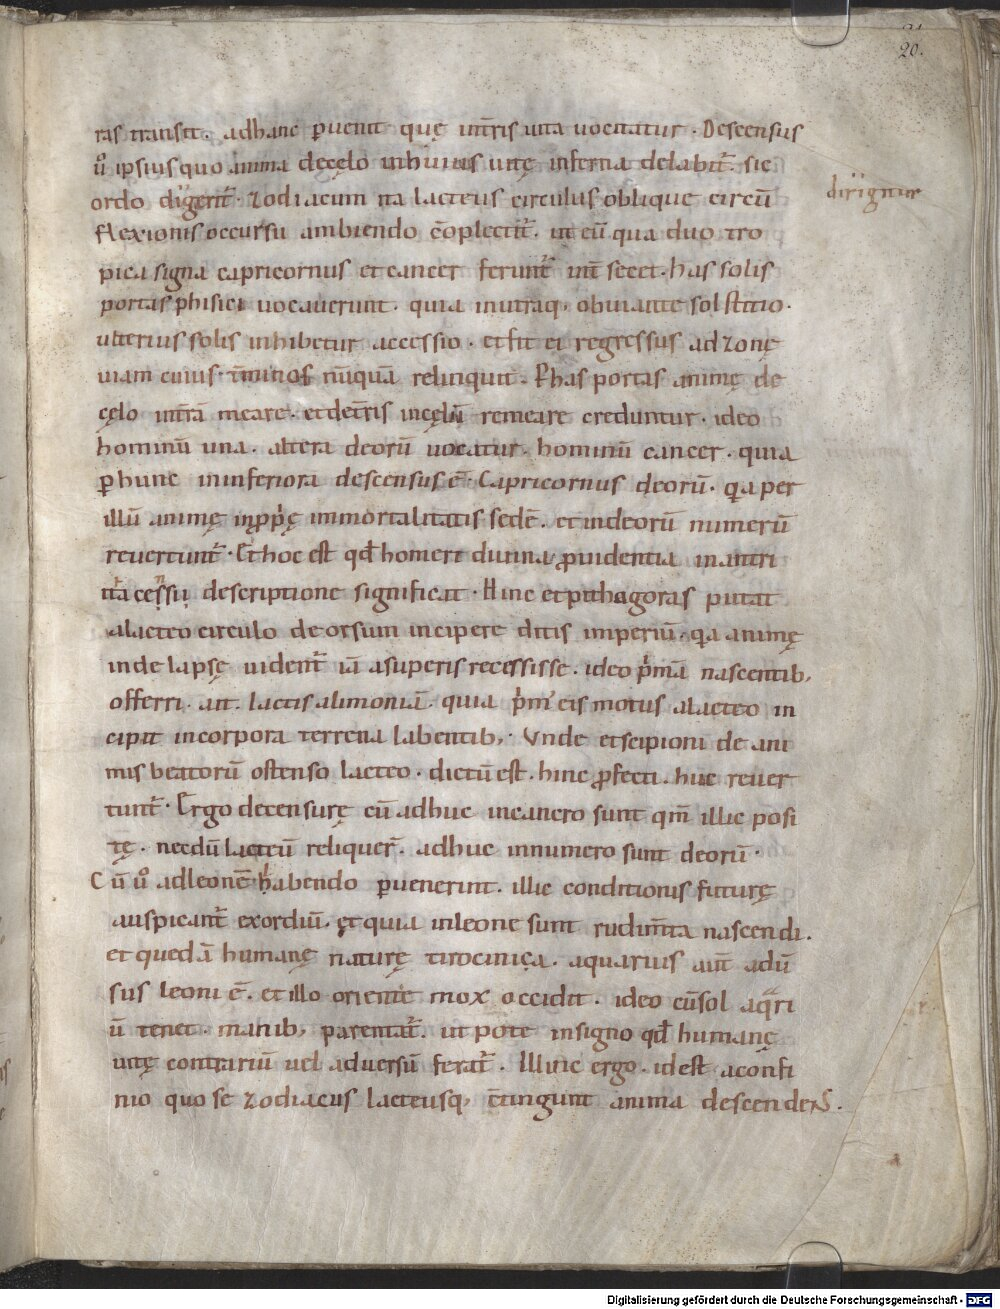 20.
ras transit. adhanc ꝑuenit quę int̄ris uita uocitatur. Descensus
ūo ipsius quo anima dęcęlo inhuius uitę inferna delabit᷑. sic
ordo digerit᷑. Zodiacum ita lacteus circulus oblique circū
dirignur
flexionis occursu ambiendo cōplectit᷑. ut eū qua duo tro
pica signa capricornus et cancer ferunt᷑ int̄ secet. has solis
portas phisici uocauerunt. quia inutraq; obuiante solstitio.
ulterius solis inhibetur accessio. et fit ei regressus ad zonę
uiam cuius t̄minos nūquā relinquit. P has portas animę de
cęlo int̄rā meare. et det̄ris incęlū remeare creduntur. ideo
hominū una. altera deorū uocatur. hominū cancer. quia
ꝑ hunc ininferiora descensus ē. Capricornus deorū. qa per
illū animę inꝓpę immortalitatis sedē. et indeorū numerū
reuertunt᷑. Et hoc est qđ homeri diuina ꝓuidentia inantri
itacęssii descriptione significat. Hinc et pithagoras putat
alacteo circulo deorsum incipere ditis imperiū. qa animę
inde lapsę uident᷑ iā asuperis recessisse. ideo pimā nascentib;
offerri. ait. lactis alimoniā. quia pim' eis motus alacteo in
cipit incorpora terrena labentib;. Vnde et scipioni de ani
mis beatorū ostenso lacteo. dictū est. hinc ꝓfecti. huc reuer
tunt᷑. Ergo decensurę cū adhuc incancro sunt qm̄ illic posi
tę. necdū lacteū reliquer̄. adhuc innumero sunt deorū.
Cū ūo adleonē habendo ꝑuenerint. illic conditionis futurę
auspicant᷑ exordiū. et quia inleone sunt rudim̄ta nascendi.
et quedā humanę naturę tirocinia. aquarius aut̄ aduer
sus leoni ē. et illo oriente mox occidit. ideo cū sol aqari
ū tenet. manib; parentat᷑. ut pote insigno qđ humanę
uitę contrariū uel aduersū ferat᷑. Illinc ergo. id est aconfi
nio quo se zodiacus lacteusq; c̄tingunt anima descendens.
Digitalisierung gefördert durch die Deutsche Forschungsgemeinschaft - DFG